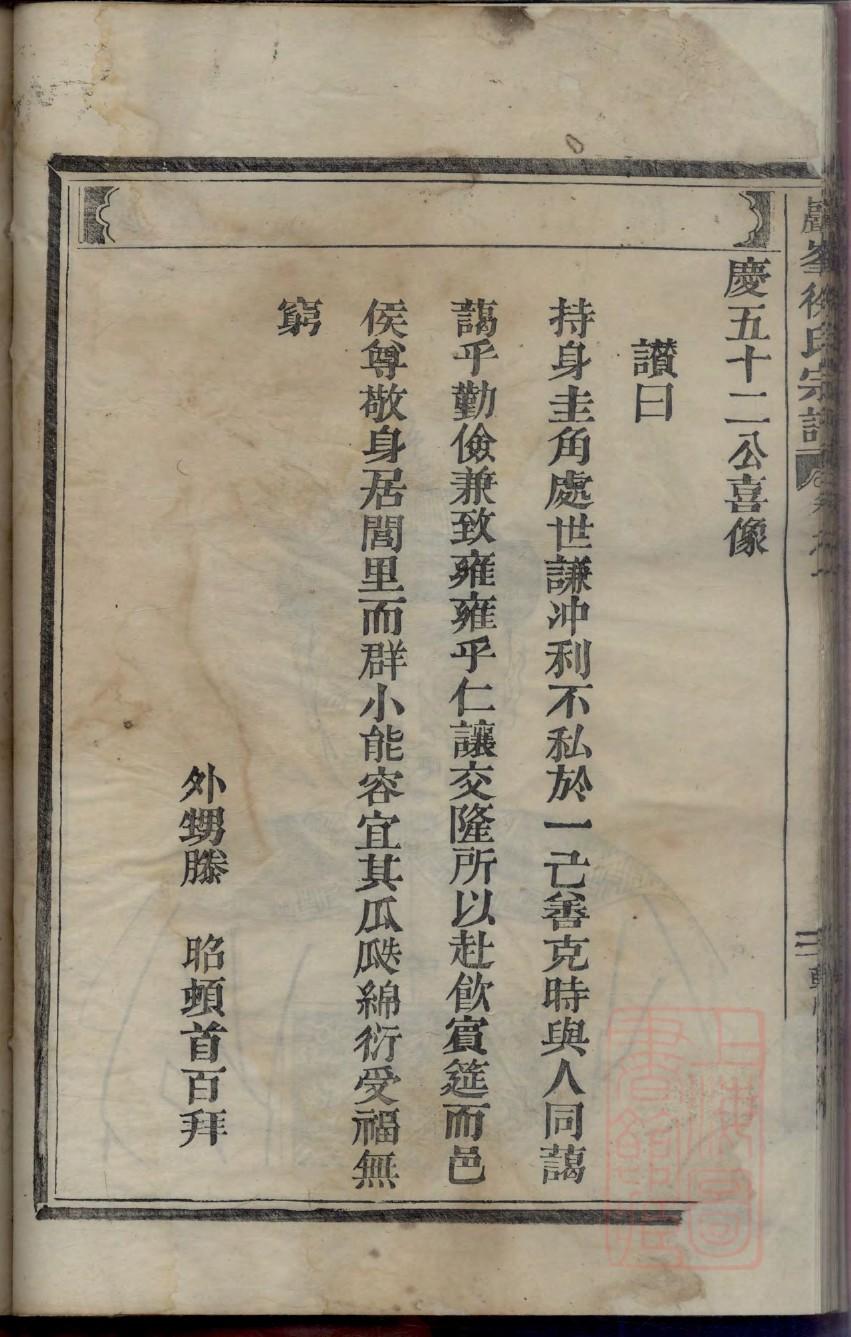 慶五十二公喜像
讃曰
持身圭角處世謙冲利不私於一己善克時與人同藹
藹乎勤儉兼致雍雍乎仁讓交隆所以赴飲賓筵而邑
侯尊敬身居閭里而群小能容宜其瓜瓞綿衍受福無
窮
外甥滕　昭頓首百拜
峯徐氏宗譜
上海圖書館藏